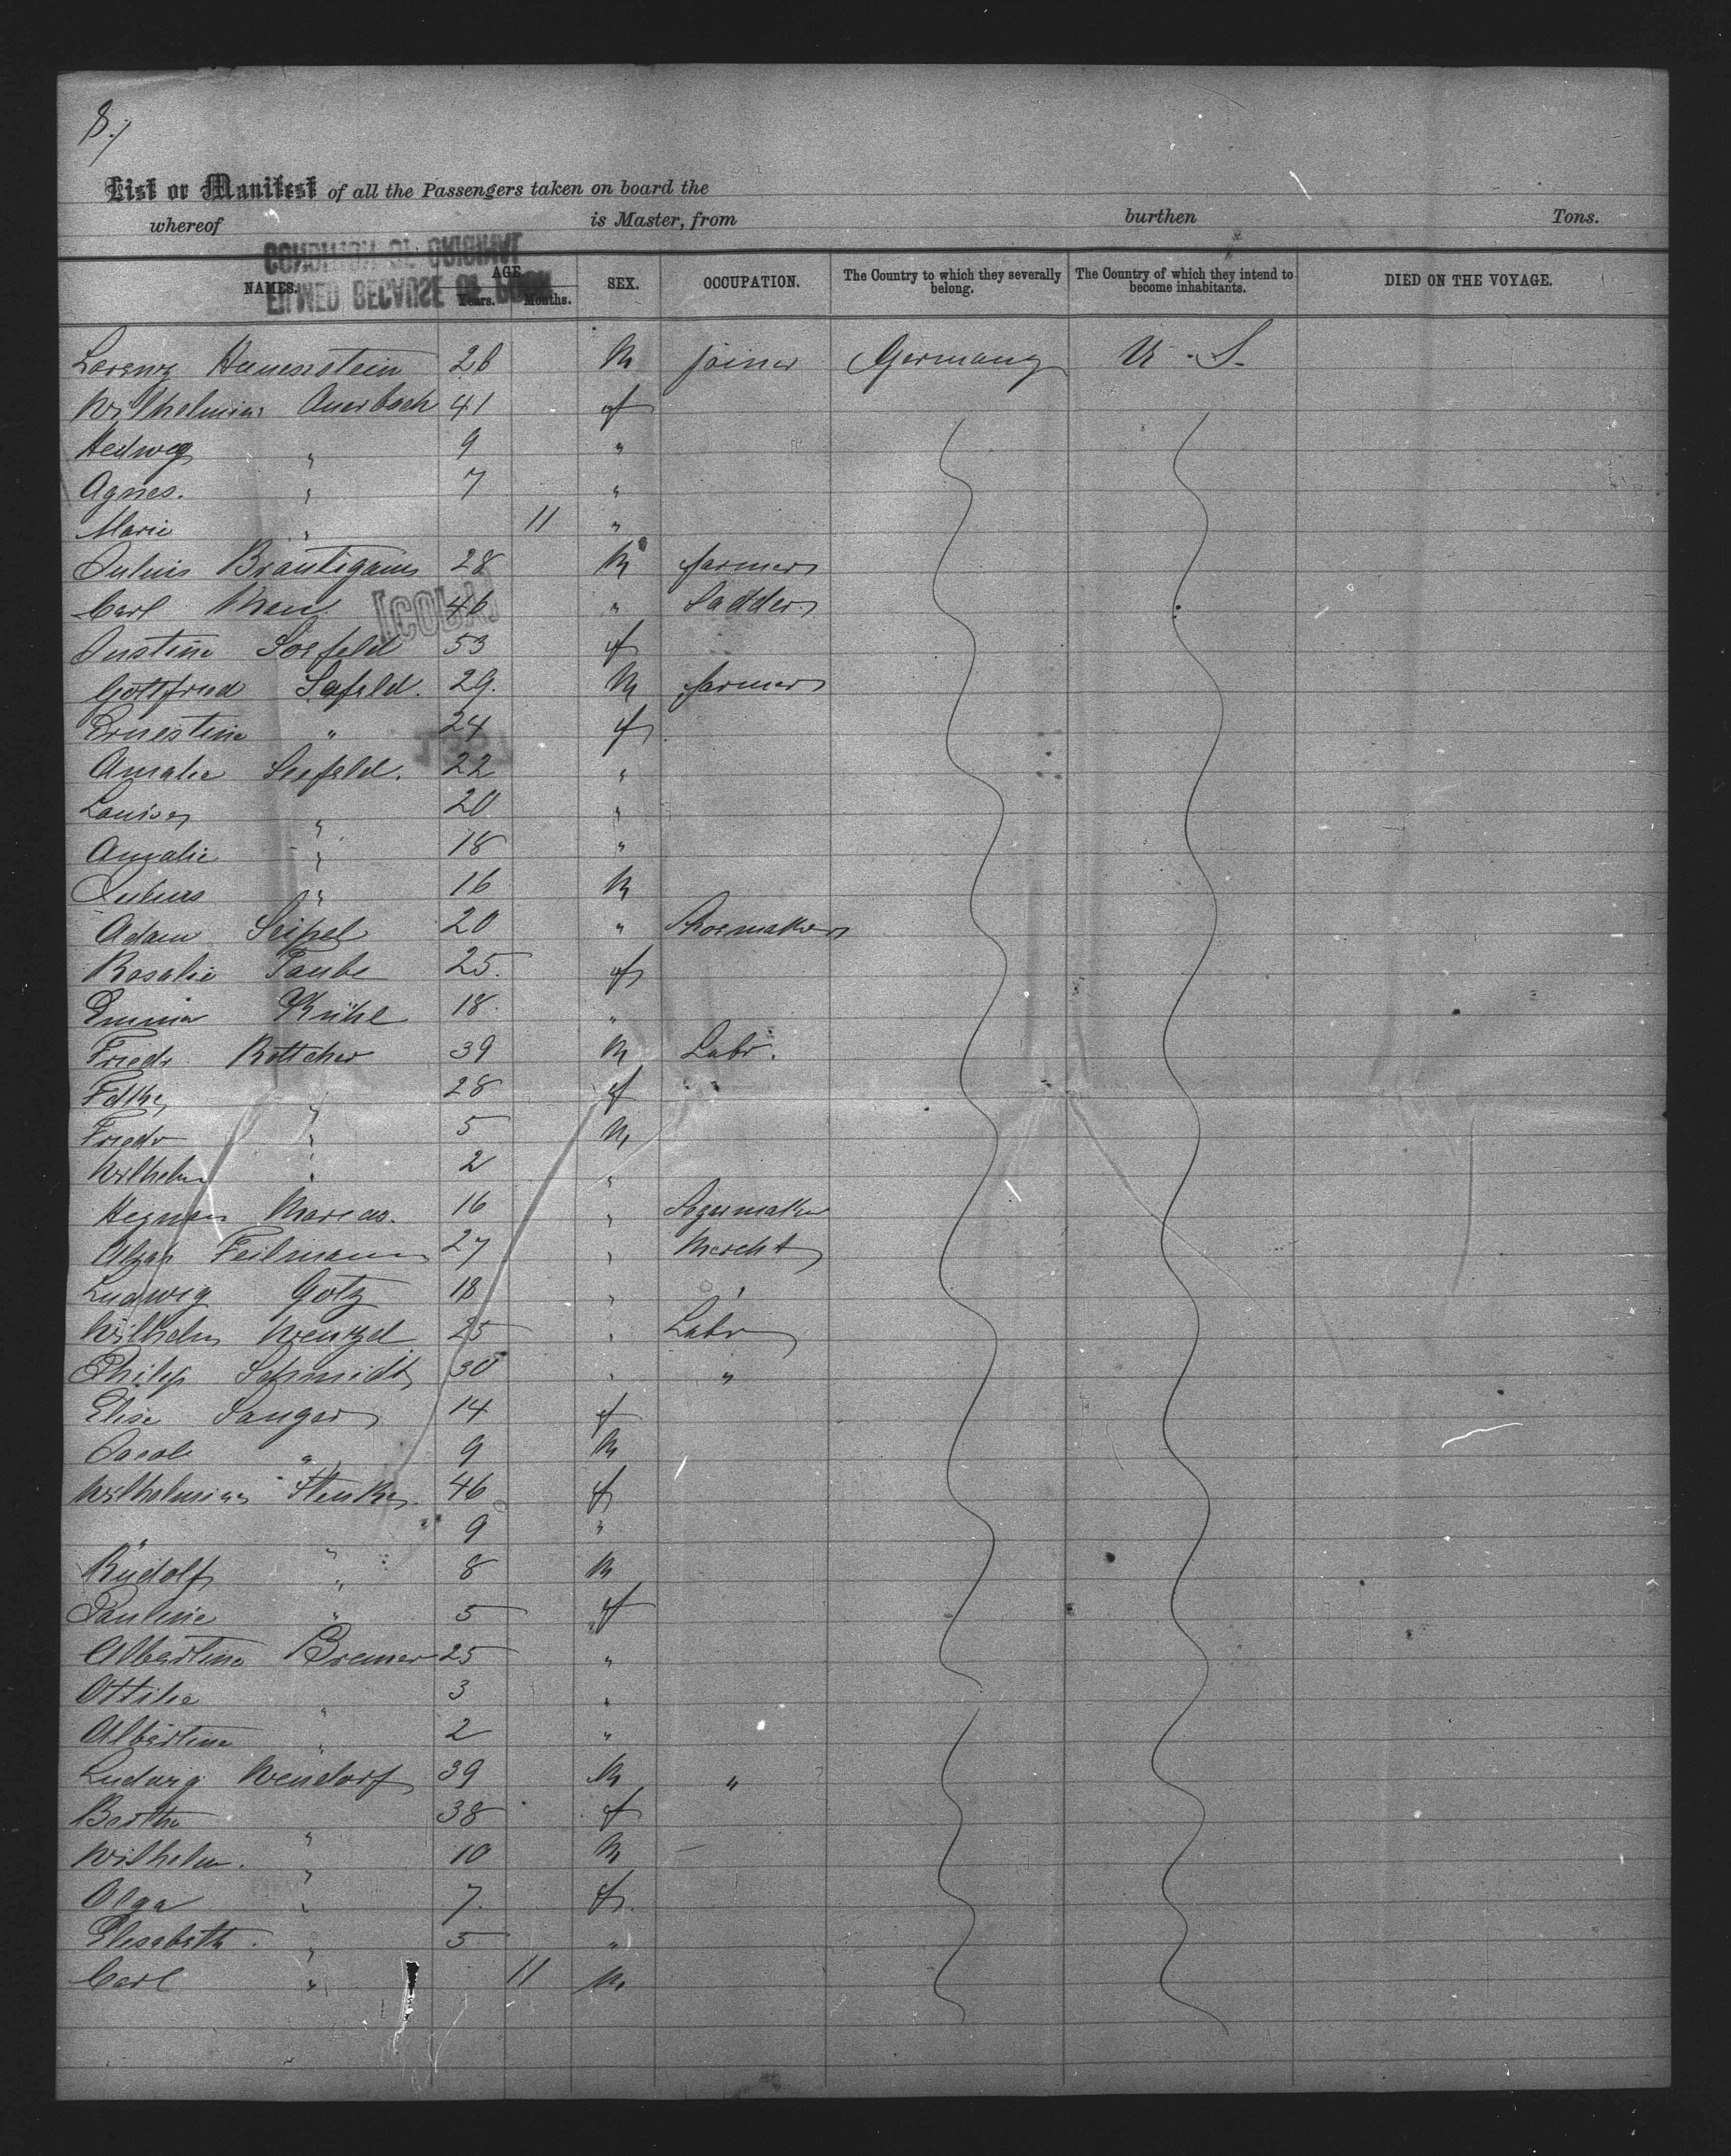 8./
List or Manifest of all the Passengers taken on board the
whereof is Master, from burthen Tons.
NAMES. AGE. Years. Months. SEX. OCCUPATION. The Country to which they severally belong. The Country of which they intend to become inhabitants. DIED ON THE VOYAGE.
Lorenz Hauenstein 26 M joiner Germany U. S.
Wilhelmine Auerbach 41 f
Hedwig " 9 "
Agnes. " 7 "
Marie " 11 "
Julius Bräutigam 28 M farmer
Carl 46 " Sadder
Justine Seefeld 53 f
Gottfried Sefeld. 29. M farmer
Ernestine " 24 f
Amalie Seefeld. 22 "
Louise " 20 "
Amalie " 18 "
Julius " 16 M
Adam Seipel 20 " Shoemaker
Rosalie Taube 25. f
Emma Kühl 18. "
Friedr. Böttcher 39 M Labr.
Fdke " 28 f
Friedr " 5 M
Wilhelm " 2 "
Herman Marcus. 16 "
Feilmann 27 " Mercht
Ludwig Götz 18 " "
Wilhelm Wenzel 25 " Labr
Philip Schmidt 30 " "
Elise Sanger 14 f
Jacob " 9 M
Wilhelmine 46 f
" " 9 "
Rudolf " 8 M
Pauline " 5 f
Albertine Bremer 25 "
Ottilie " 3 "
Albertine " 2 "
Ludwig Wendorf 39 M "
Bertha " 38 f
Wilhelm. " 10 M
Olga " 7. f.
Elisabeth. " 5 "
Carl " 11 M